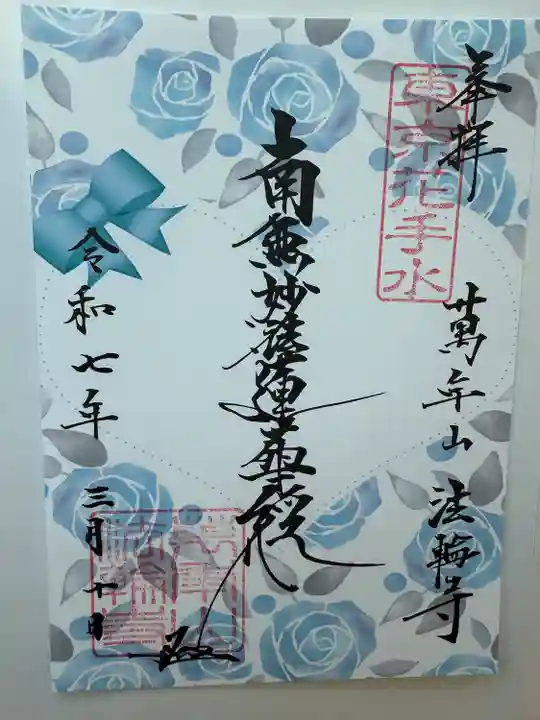 奉拝
東京花手水
萬年山 法輪寺
南無妙法蓮華経
令和七年
三月十日